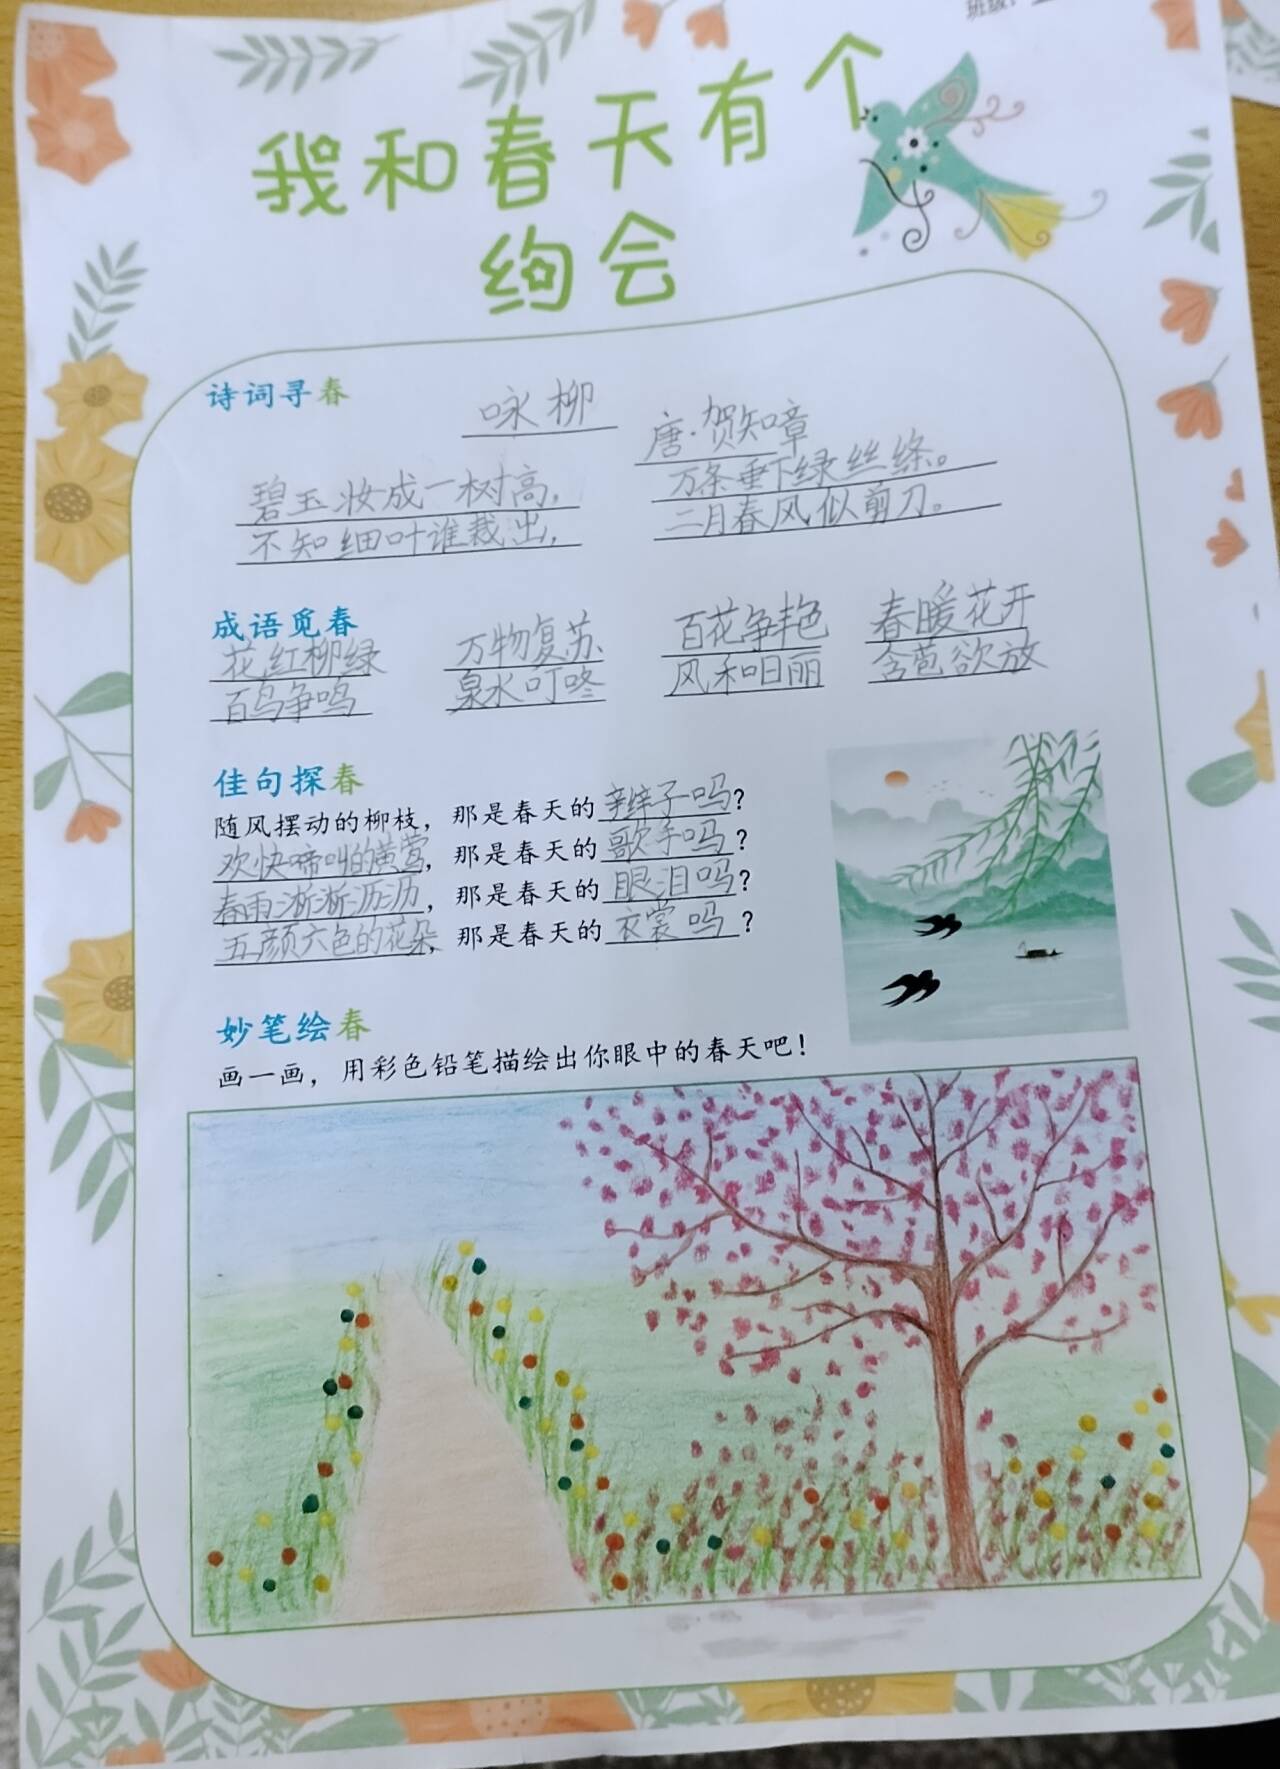 班级：
我和春天有个
约会
诗词寻春
咏柳
唐·贺知章
碧玉妆成一树高，
万条垂下绿丝绦。
不知细叶谁裁出，
二月春风似剪刀。
成语觅春
花红柳绿 万物复苏 百花争艳 春暖花开
百鸟争鸣 泉水叮咚 风和日丽 含苞欲放
佳句探春
随风摆动的柳枝，那是春天的辫子吗？
欢快啼叫的黄莺，那是春天的歌手吗？
春雨淅淅沥沥，那是春天的眼泪吗？
五颜六色的花朵，那是春天的衣裳吗？
妙笔绘春
画一画，用彩色铅笔描绘出你眼中的春天吧！